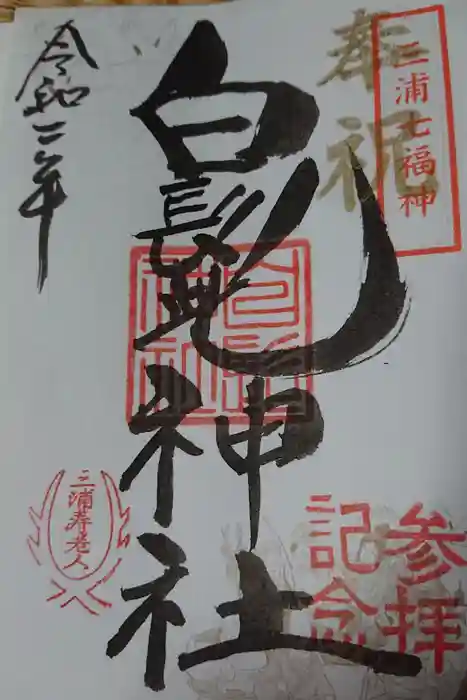 奉祝
三浦七福神
参拝
記念
白髭神社
白髭神社
三浦寿老人
令和二年